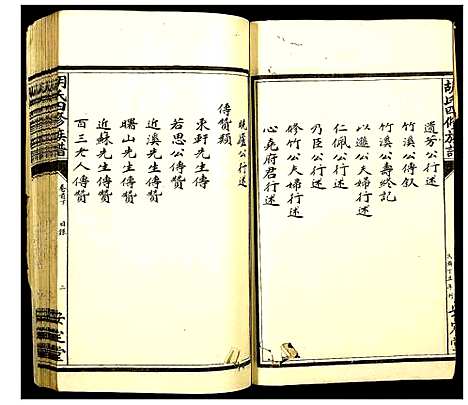 胡氏四修族譜
遺芳公行述
竹溪公傳敘
竹溪公壽終記
以遜公夫婦行述
仁佩公行述
乃臣公行述
修竹公夫婦行述
心堯府君行述
安定堂
曉廬公行述
傳贊類
東軒先生傳
若思公傳贊
近溪先生傳贊
曙山先生傳贊
近蘇先生傳贊
百三老人傳贊
胡氏四修族譜
卷首下 目錄 二
安定堂